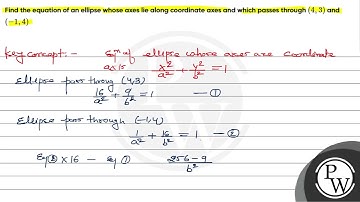 Find the equation of an ellipse whose axes lie along coordinate axes and which passes through (4, 3) and
(−1, 4)
Key concept :- Eqⁿ of ellipse whose axes are coordinate
axis x²/a² + y²/b² = 1
Ellipse pass throug (4,3)
16/a² + 9/b² = 1 — ①
Ellipse pass through (-1,4)
1/a² + 16/b² = 1 — ②
Eq② × 16 - eq ① (256-9)/b²
PW